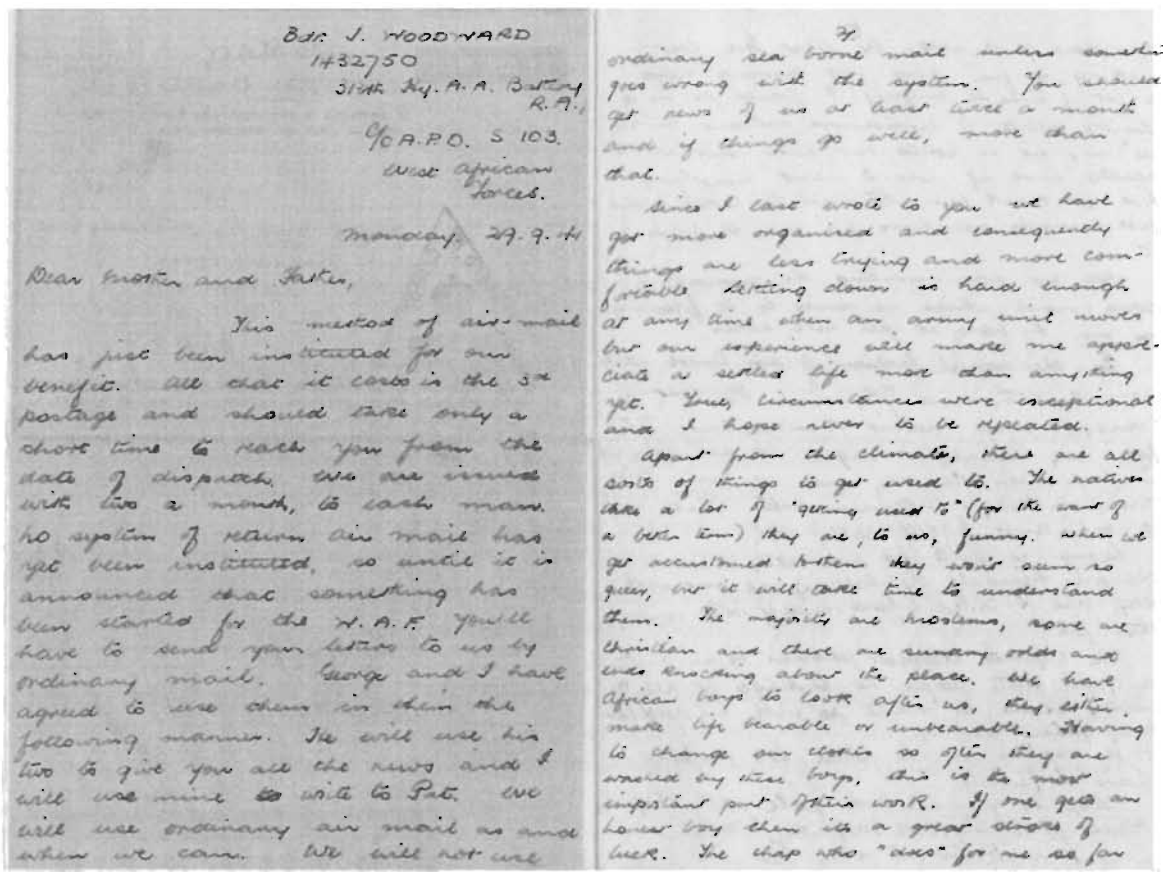 Bdr. J. WOODWARD
1432750
Hy. A.A. Battery
R.A.,
c/o A.P.O. S 103.
West African
Forces.
Monday. 29. 9. 41
Dear Mother and Father,
This method of air-mail
has just been instituted for our
benefit. All that it costs is the 3d
postage and should take only a
short time to reach you from the
date of dispatch. We are issued
with two a month, to each man.
No system of return air mail has
yet been instituted, so until it is
announced that something has
been started for the W.A.F. you'll
have to send your letters to us by
ordinary mail. George and I have
agreed to use them in the
following manner. He will use his
two to give you all the news and I
will use mine to write to Pat. We
will use ordinary air mail as and
when we can. We will not use
2/
ordinary sea borne mail unless somethin
goes wrong with the system. You should
get news of us at least twice a month
and if things go well, more than
that.
Since I last wrote to you we have
got more organised and consequently
things are less trying and more com-
fortable. Settling down is hard enough
at any time when an army unit moves
but our experience will make me appre-
ciate a settled life more than anything
yet. circumstances were exceptional
and I hope never to be repeated.
Apart from the climate, there are all
sorts of things to get used to. The natives
take a lot of "getting used to" (for the want of
a better term) they are, to us, funny. When we
get accustomed to them they won't seem so
queer, but it will take time to understand
them. The majority are Moslems, some are
Christian and there are sundry odds and
ends knocking about the place. We have
African boys to look after us, they either
make life bearable or unbearable. Having
to change our clothes so often they are
washed by these boys, this is the most
important part of their work. If one gets an
honest boy then its a great stroke of
luck. The chap who "does" for me so far